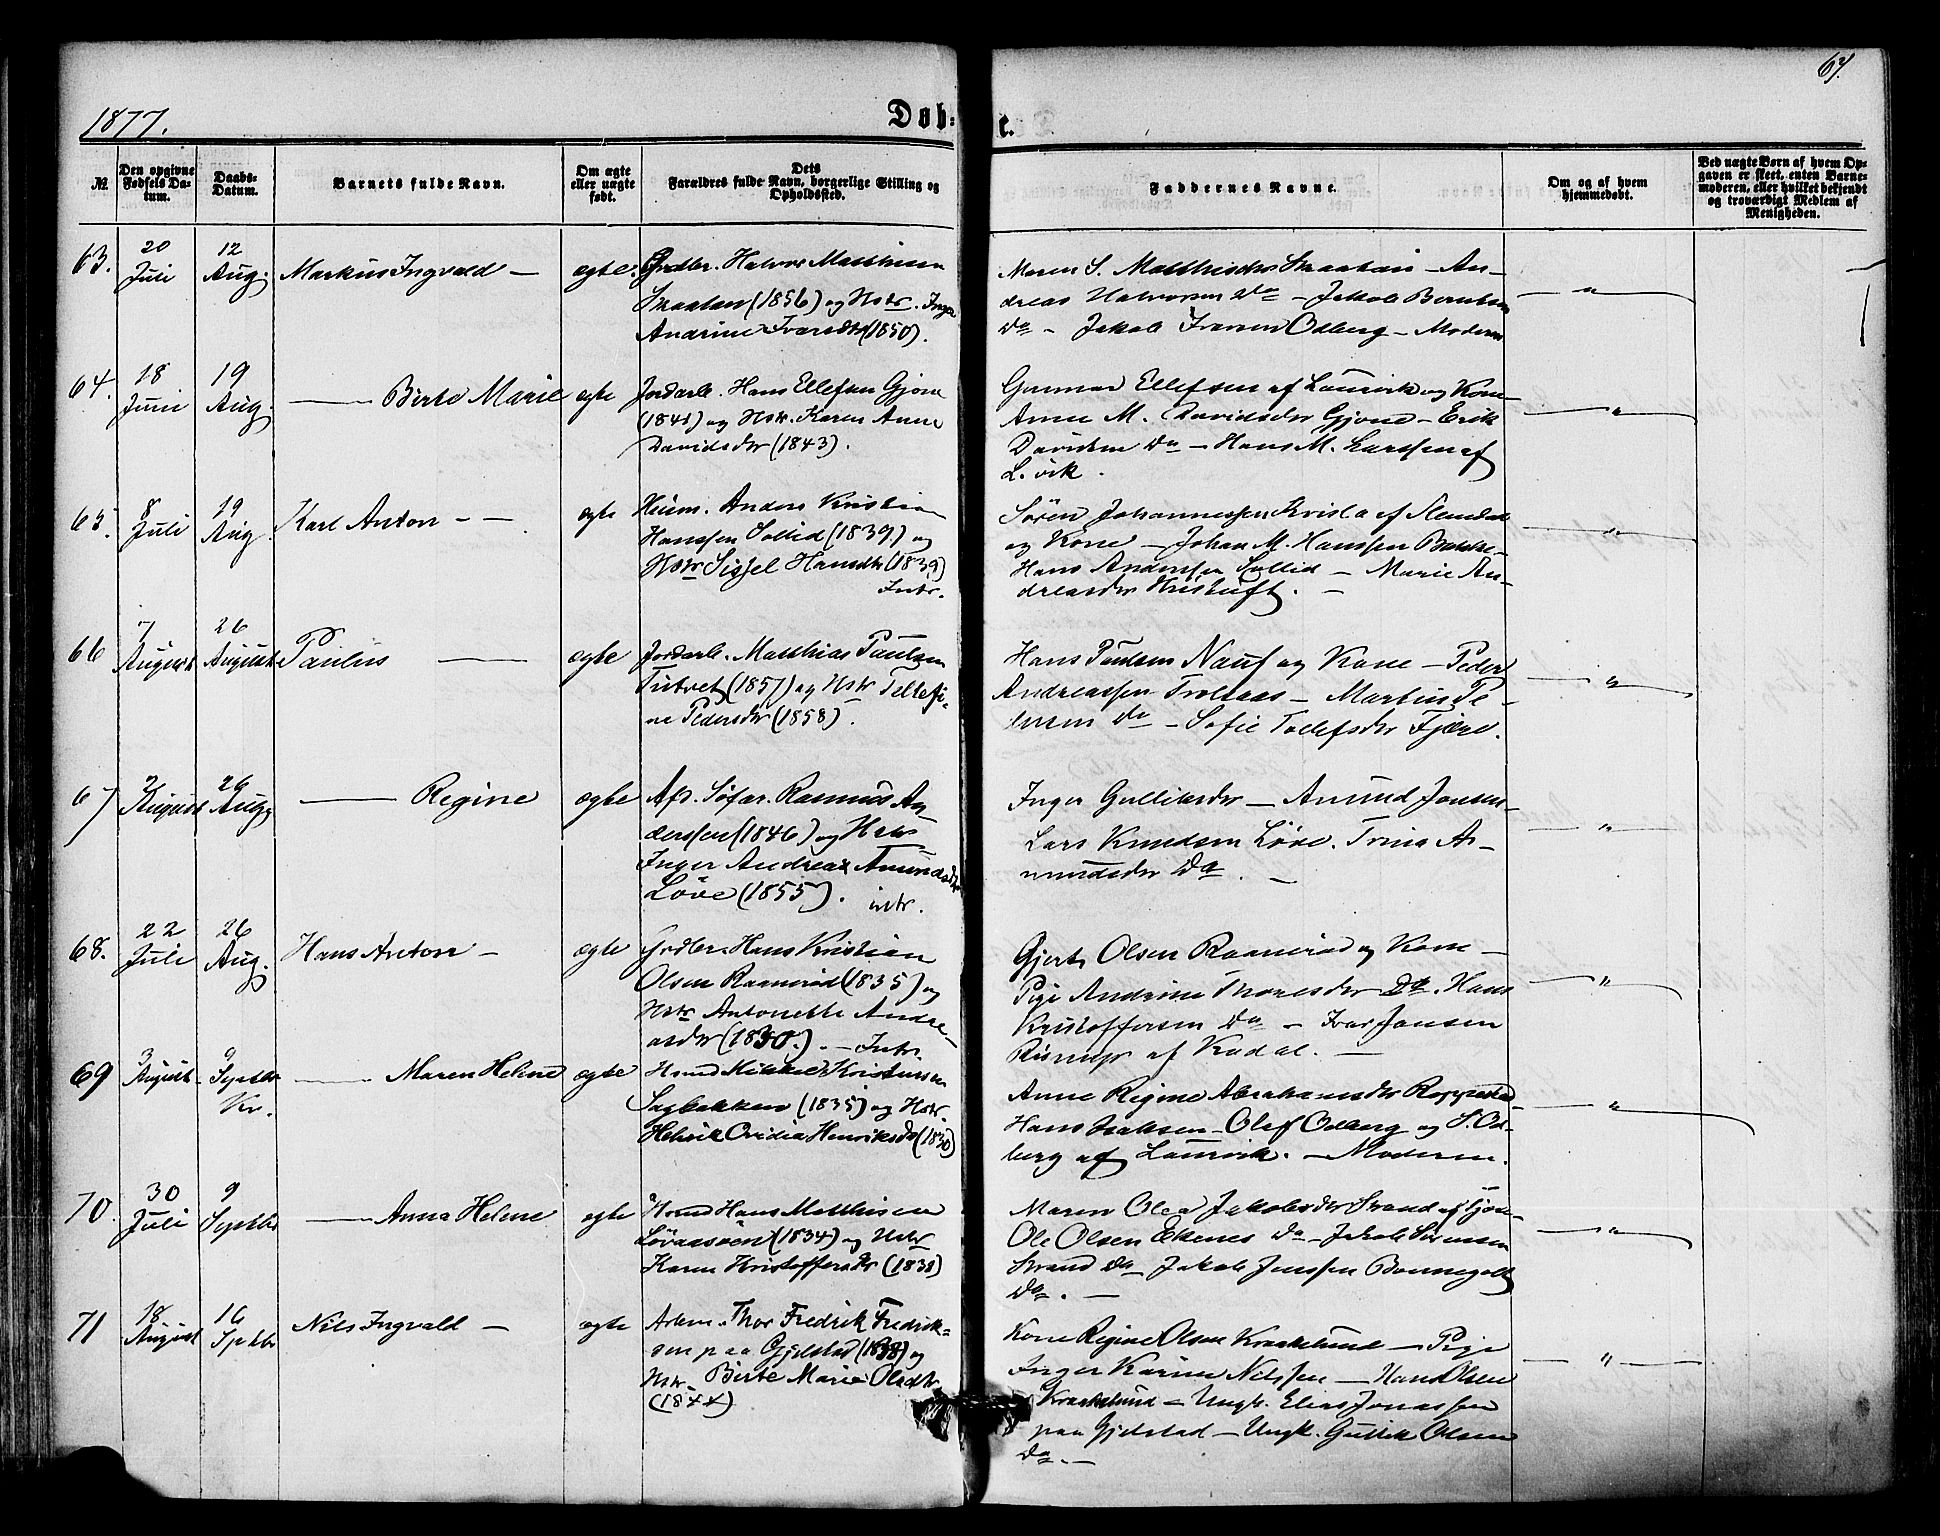 1877.
Døb-
t.
67.
№
Den opgivne
Fødsels Da-
tum.
Daabs-
Datum.
Barnets fulde Navn.
Om ægte
eller uægte
født.
Dets
Forældres fulde Navn, borgerlige Stilling og
Opholdssted.
Faddernes Navne.
Om og af hvem
hjemmedøbt.
Ved uægte Børn af hvem Op-
gaven er skeet, enten Barne-
moderen, eller hvilket bekjendt
og troværdigt Medlem af
Menigheden.
63. 20 Juli 12 Aug. Markus Ingvald — ægte.
Grdbr. Halvor Matthisen
Skaatan (1856) og Hstr. Inger
Andrine Ivarsdtr (1850).
Maren S. Matthisdtr Skaatan — An-
dreas Halvorsen Do — Jakob Berntsen
Do — Jakob Iversen Odberg — Moderen
— " —
64. 18 Juni 19 Aug. — Birte Marie ægte
Jordarb. Hans Ellefsen Gjone
(1841) og Hstr. Karen Anne
Davidsdtr (1843).
Gunnar Ellefsen af Laurvik og Kone
Anne M. Davidsdtr Gjone — Erik
Davidsen Do — Hans M. Larssen af
L.vik.
— " —
65. 8 Juli 19 Aug. Karl Anton — — ægte
Huusm. Anders Kristian
Hanssen Sollid (1839) og
Hstr Sissel Hansdtr (1839)
Intr.
Sören Johannessen Kvisla af Slemdal
og Kone — Johan M. Hanssen Bakke —
Hans Anderssen Sollid — Marie An-
dreasdtr —
— " —
66 7 August 26 August Paulus — ægte
Jordarb. Matthias Paulsen
Tutvet (1857) og Hstr Tellefi-
ne Pedersdtr (1858).
Hans Paulsen Nauf og Kone — Peder
Andreassen Trolsaas — Martin Pe-
dersen Do — Sofie Tollefsdtr Fjære.
— " —
67 2 August 26 Aug. — Regine ægte
Afs. Søfar. Rasmus An-
derssen (1846) og Hstr
Inger Andrea Amundsdtr
Løve (1855). intr.
Inger Gulliksdtr — Amund Jonsen —
Lars Knudsen Löve. Trina A-
mundsdtr Do. —
— " —
68. 22 Juli 26 Aug. Hans Anton — ægte
Grdbr. Hans Kristian
Olsen Raamerød (1835) og
Hstr Antonette Andre-
asdtr (1830.). — Intr.
Gjert Olsen Raamerød og Kone —
Pige Andrine Thoresdtr Do. Hans
Kristoffersen Do — Ivar Jansen
af Kodal. —
— " —
69 3 August 9 Septbr Kv. — Maren Helene ægte
Hsmd Mikkel Kristensen
Sagbakken (1835) og Hstr.
Helvik Ovidia Henriksdtr (1830)
Anne Regine Abrahamsdtr Roppestad
Hans Isaksen — Olaf Odberg og S. Od-
berg af Laurvik. — Moderen.
— " —
70. 30 Juli 9 Septbr — Anna Helene ægte
Hsmd Hans Matthisen
Løvaasøen (1834) og Hstr
Karen Kristoffersdtr (1838)
Maren Olea Jakobsdtr Strand af Gjone
Ole Olsen Ekenes Do — Jakob Sørensen
Strand Do — Jakob Jenssen Bonnegolt
Do. —
— " —
71 18 August 16 Septbr Nils Ingvald — ægte
Arbm. Thor Fredrik Fredrik-
sen paa Gjelstad (1838) og
Hstr. Birte Marie Olsdtr
(1844)
Kone Regine Olsen Kraakelund — Pige
Inger Karine Nilssen — Hans Olsen
Kraakelund — Ungk. Elias Jonassen
paa Gjelstad — Ungk. Gullik Olsen
Do. —
— " —